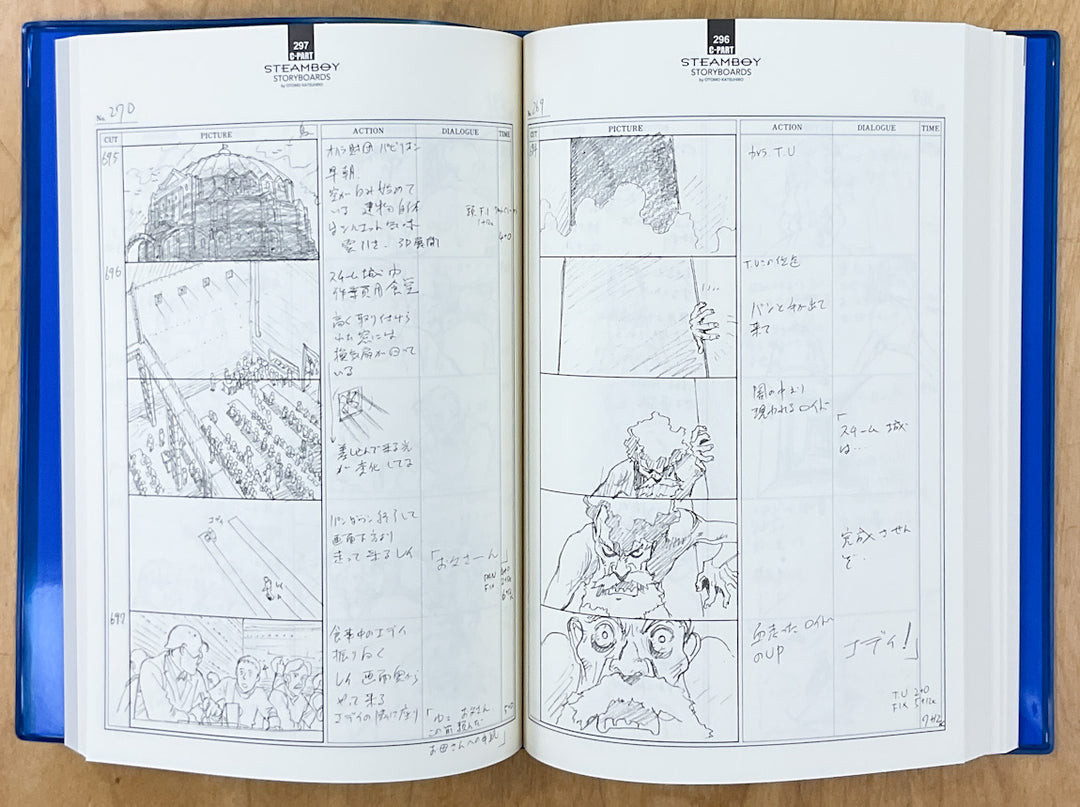 296
C-PART
STEAMBOY
STORYBOARDS
by OTOMO KATSUHIRO
No. 269
CUT
PICTURE
ACTION
DIALOGUE
TIME
から T.U
T.Uこの位置
バンと手が出て
来て
闇の中より
現われるロイド
「
スチーム城
は…
完成させん
ぞ…
血走ったロイド
のUP
エディ!」
T.U 2+0
FIX 5+12
7+12
297
C-PART
STEAMBOY
STORYBOARDS
by OTOMO KATSUHIRO
No. 270
CUT
PICTURE
ACTION
DIALOGUE
TIME
695
オハラ財団パビリオン
早朝
空が白み始めて
いる 建物自体
シルエット気味
雲引き、3D展開
4+0
696
スチーム城内
作業員用食堂
高く取り付けら
れた窓には
換気扇が回って
いる
差し込んで来る光
が変化してる
パンダウン終了して
画面下方より
走って来るレイ
「お父さーん」
PAN
FIX
エディ
レイ
697
食事中のエディ
振り向く
レイ画面奥から
やって来る
エディの隣に座り
お父さん
この前頼んだ
お母さんへの手紙」
5+0